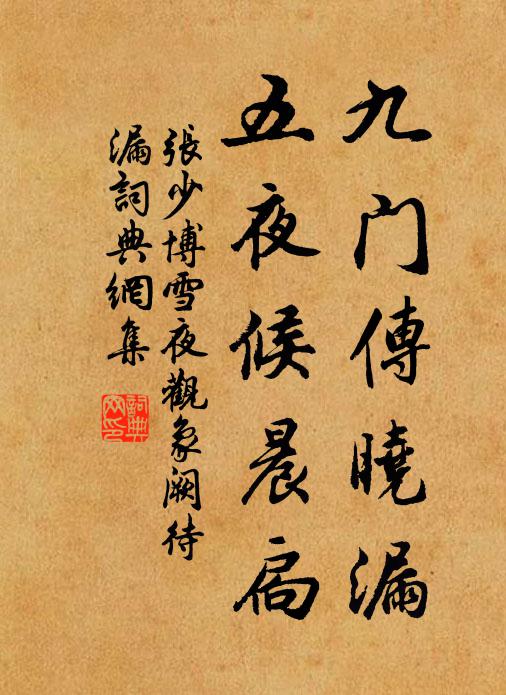 九门傳曉漏
五夜候晨扃
張少博雪夜觀象阙待
漏詞典網集
詞典
网印